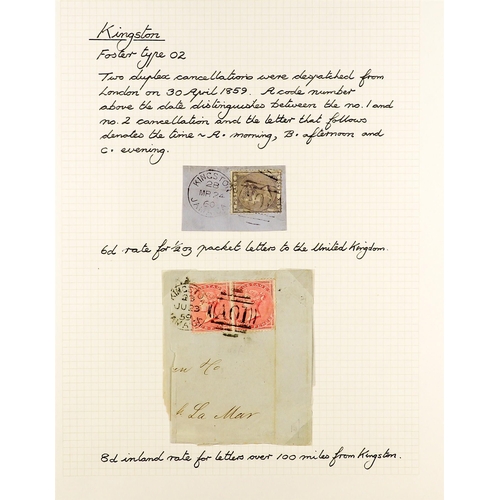 Kingston
Foster type 02
Two duplex cancellations were despatched from
London on 30 April 1859. A code number
above the date distinguishes between the no.1 and
no.2 cancellation and the letter that follows
denotes the time ~ A. morning, B. afternoon and
C. evening.
KINGSTON
2B
MR 24
60
6d rate for ½oz packet letters to the United Kingdom.
KINGSTON
JU 23
59
A01
La Mar
8d inland rate for letters over 100 miles from Kingston.